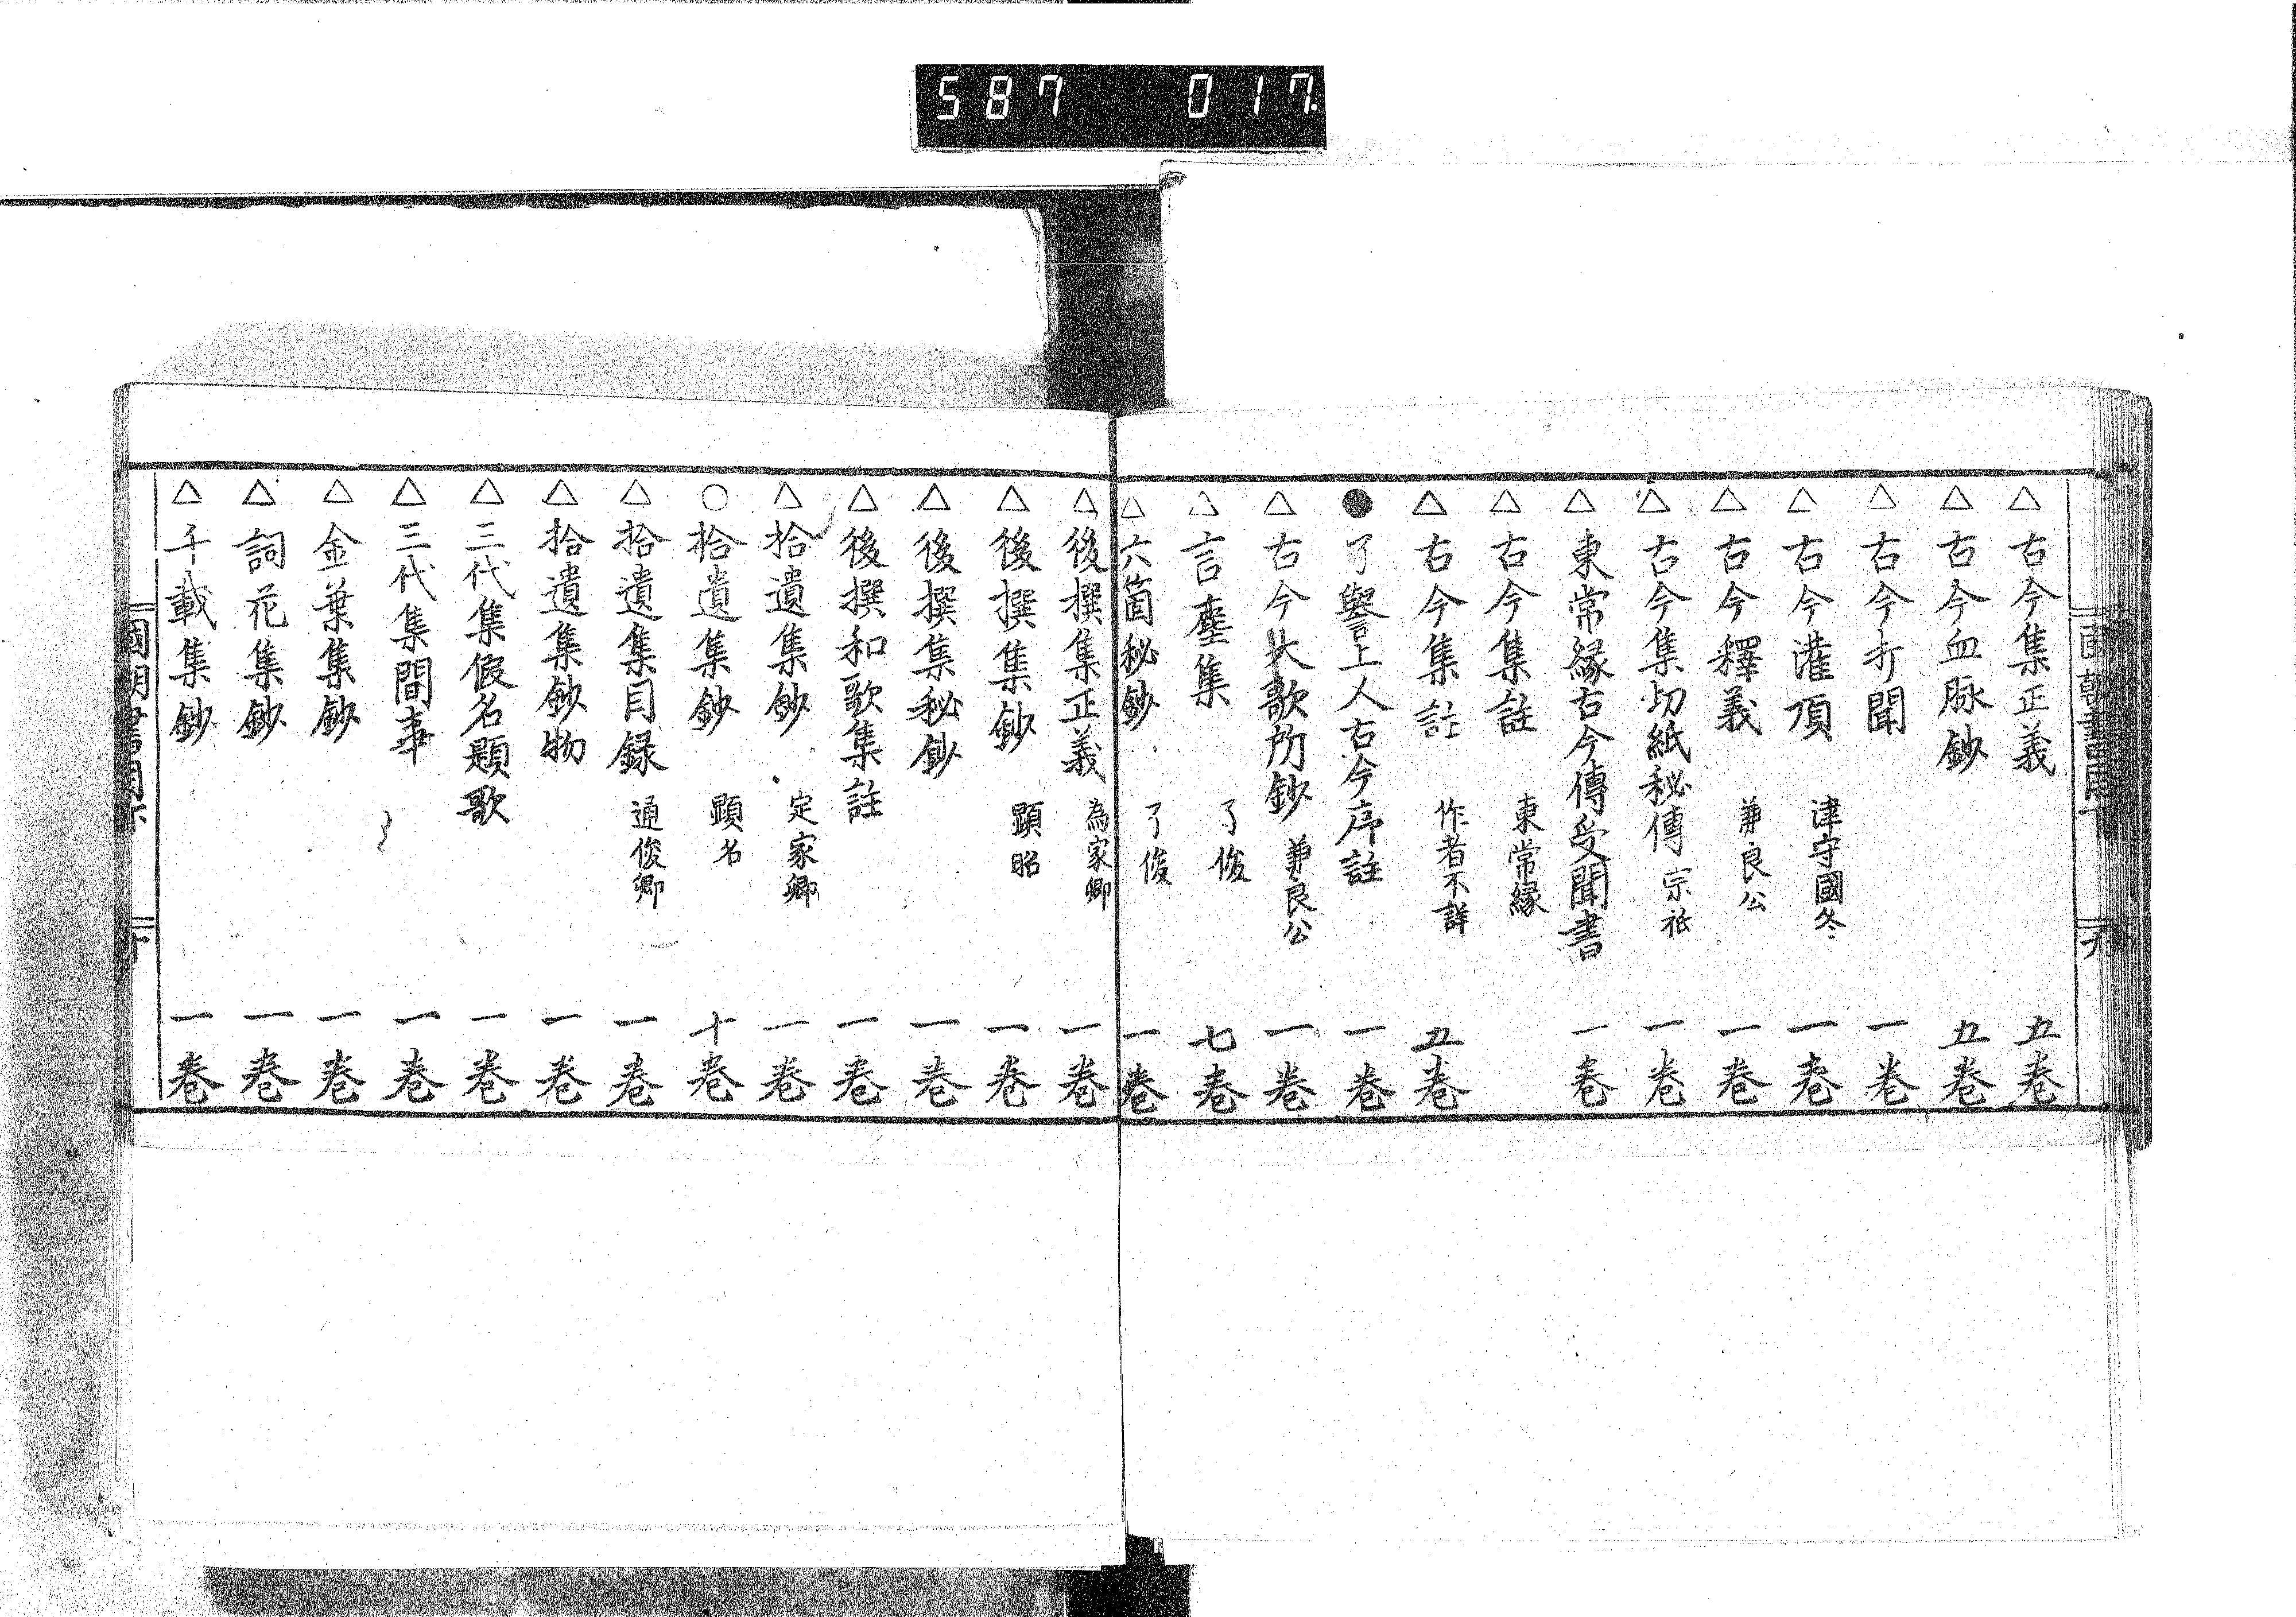 587 017.
△古今集正義 五巻
△古今血脉鈔 五巻
△古今打聞 一巻
△古今灌頂 津守國冬 一巻
△古今釋義 兼良公 一巻
△古今集切紙秘傳 宗祇 一巻
△東常縁古今傳受聞書 一巻
△古今集註 東常縁
△古今集註 作者不詳 五巻
●了譽上人古今序註 一巻
△古今大歌所鈔 兼良公 一巻
△言塵集 了俊 七巻
△六箇秘鈔 了俊 一巻
△後撰集正義 為家卿 一巻
△後撰集鈔 顕昭 一巻
△後撰集秘鈔 一巻
△後撰和歌集註 一巻
△拾遺集鈔 定家卿 一巻
○拾遺集鈔 顕名 十巻
△拾遺集目録 通俊卿 一巻
△拾遺集鈔物 一巻
△三代集假名題歌 一巻
△三代集間事 一巻
△金葉集鈔 一巻
△詞花集鈔 一巻
△千載集鈔 一巻